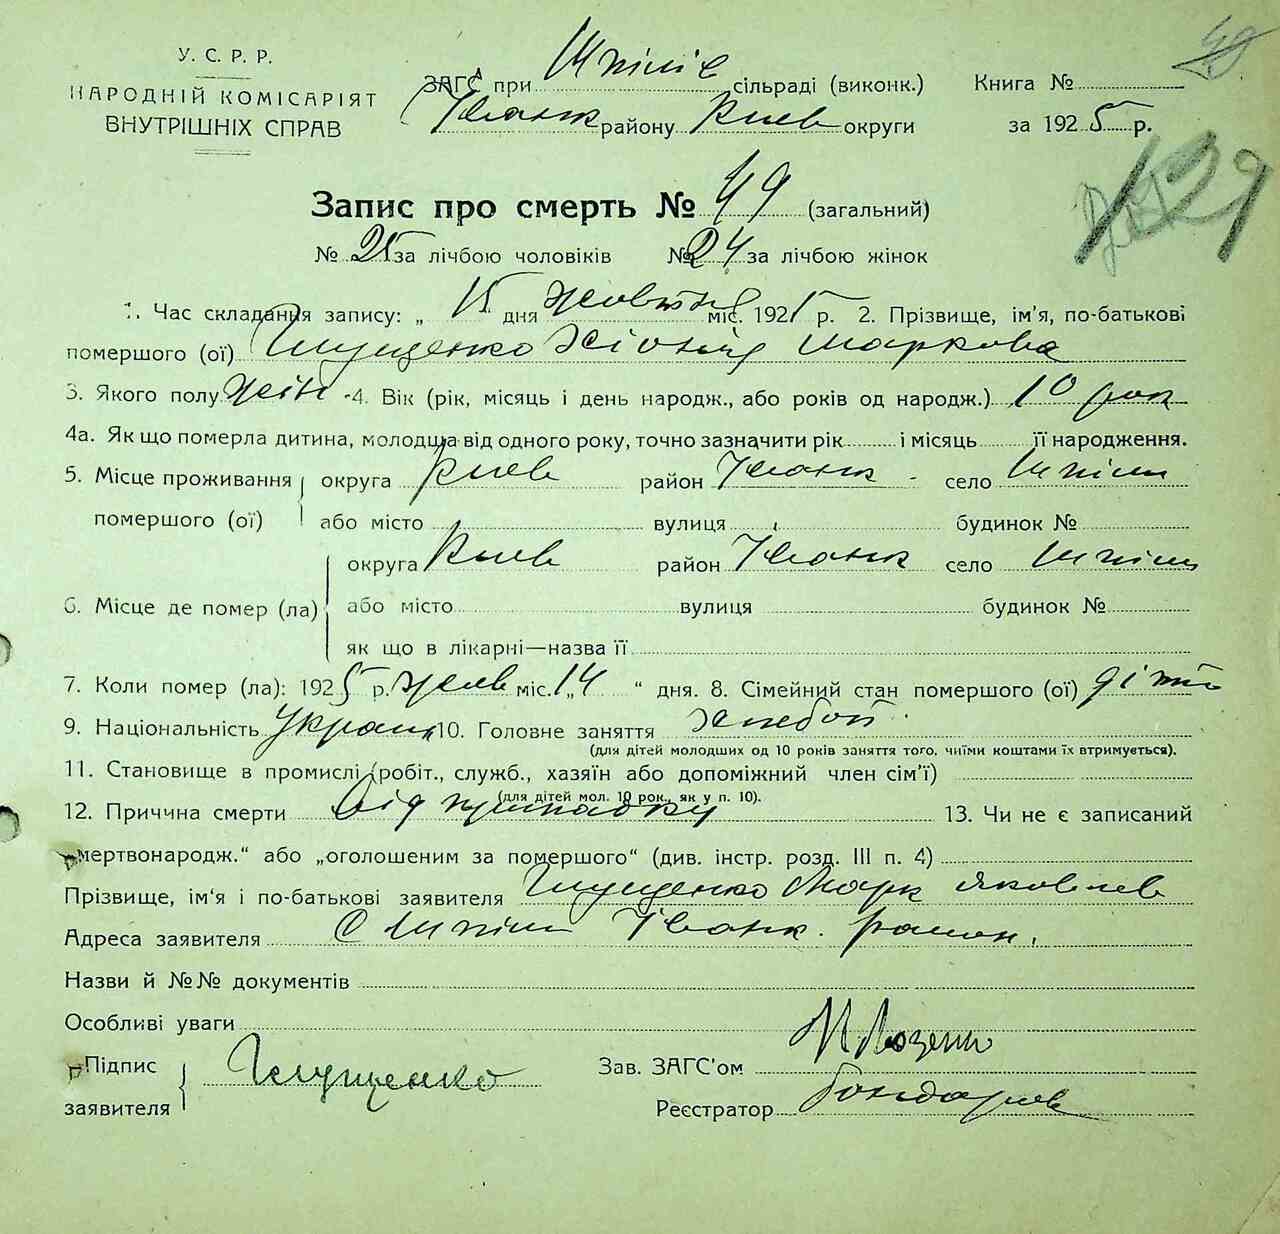 У. С. Р. Р.
НАРОДНІЙ КОМІСАРІЯТ
ВНУТРІШНІХ СПРАВ
ЗАГС при сільраді (виконк.)
Іванк району Киев округи
Книга №
за 1925 р.
49
139
Запис про смерть № 49 (загальний)
№ 25 за лічбою чоловіків № 24 за лічбою жінок
1. Час складання запису: „ 15 “ дня жовтня міс. 1925 р. 2. Прізвище, ім'я, по-батькові
помершого (ої) Глущенко Маркова
3. Якого полу жін 4. Вік (рік, місяць і день народж., або років од народж.) 10 рок
4а. Як що померла дитина, молодша від одного року, точно зазначити рік і місяць її народження.
5. Місце проживання округа Киев район Іванк село Шпілі
помершого (ої) або місто вулиця будинок №
округа Киев район Іванк село Шпілі
6. Місце де помер (ла) або місто вулиця будинок №
як що в лікарні—назва її
7. Коли помер (ла): 1925 р. жовт міс. „14 “ дня. 8. Сімейний стан помершого (ої)
9. Національність Україн 10. Головне заняття хлебоп
(для дітей молодших од 10 років заняття того, чиїми коштами їх втримується).
11. Становище в промислі (робіт., служб., хазяїн або допоміжний член сім'ї)
(для дітей мол. 10 рок., як у п. 10).
12. Причина смерти Від 13. Чи не є записаний
„мертвонародж.“ або „оголошеним за помершого“ (див. інстр. розд. III п. 4)
Прізвище, ім'я і по-батькові заявителя Глущенко Марк Яковлев
Адреса заявителя С Шпілі Іванк. район.
Назви й №№ документів
Особливі уваги
Підпис
заявителя Глущенко
Зав. ЗАГС'ом
Реєстратор Бондарев